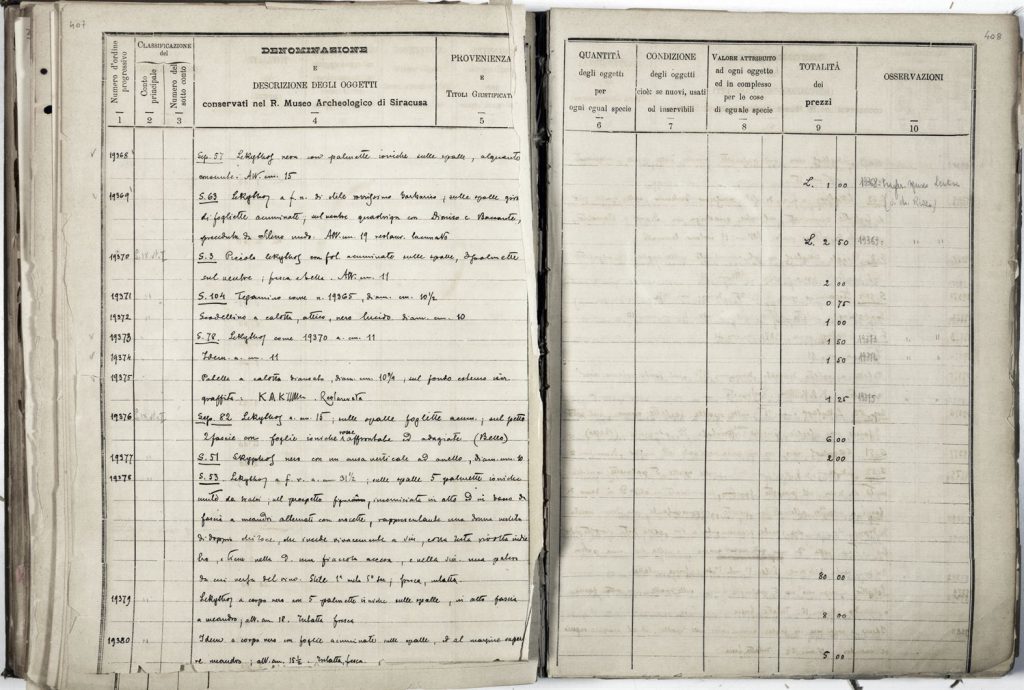 407
Numero d'ordine progressivo
CLASSIFICAZIONE
del
Conto principale
Numero del sotto conto
DENOMINAZIONE
E
DESCRIZIONE DEGLI OGGETTI
conservati nel R. Museo Archeologico di Siracusa
PROVENIENZA
E
TITOLI GIUSTIFICATI
1 2 3 4 5
19368 Sep. 57 Lekythos nera con palmette ioniche sulle spalle, alquanto
Alt. cm. 15
19369 S. 63 Lekythos a f. n. di stile ; sulle spalle giro
di fogliette acuminate ; sul ventre quadriga con Dioniso e Baccante,
preceduta da Sileno nudo. Alt. cm. 19 restaur. lacunato
19370 S. 3 Piccola lekythos con fol. acuminate sulle spalle, palmette
sul ventre ; fosca Alt. cm. 11
19371 S. 104 Tegamino come n. 19365, diam. cm. 10½
19372 Scodellino a calotta, attico, nero lucido. diam. cm. 10
19373 S. 78. Lekythos come 19370 a. cm. 11
19374 Idem a. cm. 11
19375 Patella a calotta diam. cm. 10¾, sul fondo esterno
graffito : Restaurata
19376 Sep. 82 Lekythos a. cm. 15, sulle spalle fogliette acum. ; sul petto
2 fascie con foglie ioniche rosse affrontate ed adagiate (Bello)
19377 S. 51 Skyphos nero con un ansa verticale ad anello, diam. cm. 10
19378 S. 53 Lekythos a f. r. a. cm 31½ ; sulle spalle 5 palmette ioniche
unite da tralci ; nel prospetto incorniciata in alto ed in basso di
fascie a meandri alternati con crocette, rappresentante una donna vestita
di doppio che incede vivacemente a sin. colla testa rivolta indie
tro, e tiene nella d. una fiaccola accesa, e nella sin. una patera
da cui versa del vino. Stile 1ª metà 5º sec ; fosca, intatta.
19379 Lekythos a corpo nero con 5 palmette ioniche sulle spalle, in alto fascia
a meandro ; alt. cm. 18. Intatta fosca
19380 Idem a corpo nero con foglie acuminate sulle spalle, ed al margine super
re meandro ; alt. cm. 18½. Intatta, fosca.
408
QUANTITÀ
degli oggetti
per
ogni egual specie
CONDIZIONE
degli oggetti
cioè: se nuovi, usati
od inservibili
VALORE ATTRIBUITO
ad ogni oggetto
ed in complesso
per le cose
di eguale specie
TOTALITÀ
dei
prezzi
OSSERVAZIONI
6 7 8 9 10
L. 1 00 19368
L. 2 50 19369 " "
2 00
0 75
1 00
1 50 19373 " "
1 50 19374
1 25 19375
6 00
2 00
80 00
8 00
5 00